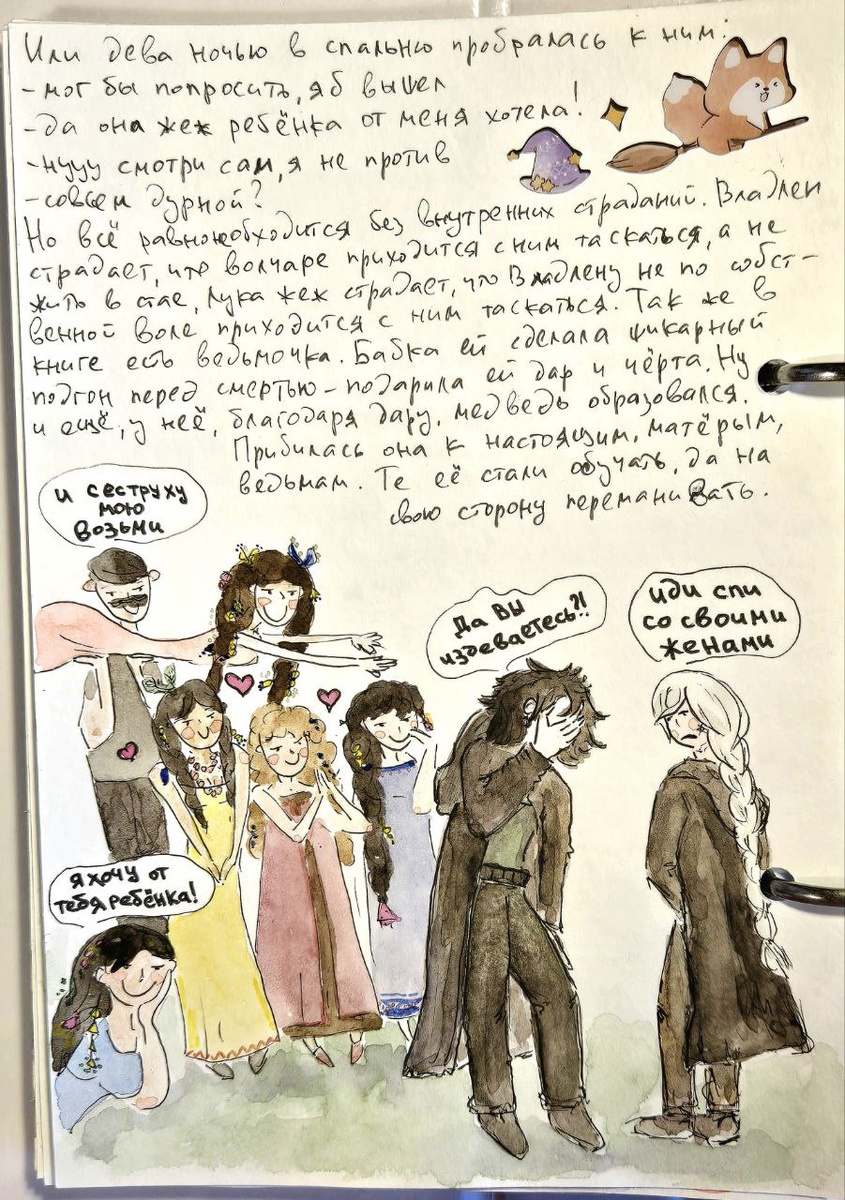 Или дева ночью в спальню пробралась к ним:
-мог бы попросить, я б вышел
-да она жеж ребёнка от меня хотела!
-нууу смотри сам, я не против
-совсем дурной?
Но всё равно необходится без внутренних страданий. Владлен
страдает, что волчаре приходится с ним таскаться, а не
жить в стае, Лука жеж страдает, что Владлену не по собст-
венной воле приходится с ним таскаться. Так же в
книге есть ведьмочка. Бабка ей сделала шикарный
подгон перед смертью – подарила ей дар и чёрта. Ну
и ещё, у неё, благодаря дару, медведь образовался.
Прибилась она к настоящим, матёрым,
ведьмам. Те её стали обучать, да на
свою сторону переманивать.
и сеструху
мою
возьми
Да вы
издеваетесь?!
иди спи
со своими
женами
я хочу от
тебя ребёнка!